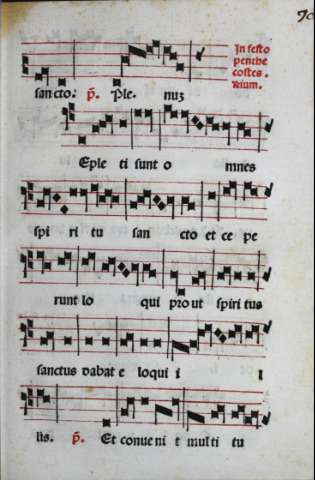 In festo
penthe
costes.
sancto: p̃. Ple nuz
Eple ti sunt o mnes
spi ri tu san cto et ce pe
runt lo qui pro ut spiri tus
sanctus dabat e loqui i l
lis. p̃. Et conue ni t multi tu